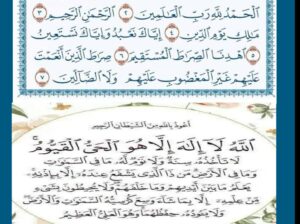 الْحَمْدُ لِلَّهِ رَبِّ الْعَالَمِينَ ٢ الرَّحْمَٰنِ الرَّحِيمِ ٣
مَالِكِ يَوْمِ الدِّينِ ٤ إِيَّاكَ نَعْبُدُ وَإِيَّاكَ نَسْتَعِينُ
٥ اهْدِنَا الصِّرَاطَ الْمُسْتَقِيمَ ٦ صِرَاطَ الَّذِينَ أَنْعَمْتَ
عَلَيْهِمْ غَيْرِ الْمَغْضُوبِ عَلَيْهِمْ وَلَا الضَّالِّينَ ٧
أعوذ بالله من الشيطان الرجيم
اللَّهُ لَا إِلَٰهَ إِلَّا هُوَ الْحَيُّ الْقَيُّومُ
لَا تَأْخُذُهُ سِنَةٌ وَلَا نَوْمٌ لَهُ مَا فِي السَّمَوَاتِ
وَمَا فِي الْأَرْضِ مَن ذَا الَّذِي يَشْفَعُ عِندَهُ إِلَّا بِإِذْنِهِ
يَعْلَمُ مَا بَيْنَ أَيْدِيهِمْ وَمَا خَلْفَهُمْ وَلَا يُحِيطُونَ بِشَيْءٍ
مِنْ عِلْمِهِ إِلَّا بِمَا شَاءَ وَسِعَ كُرْسِيُّهُ السَّمَوَاتِ وَالْأَرْضَ
وَلَا يَئُودُهُ حِفْظُهُمَا وَهُوَ الْعَلِيُّ الْعَظِيمُ